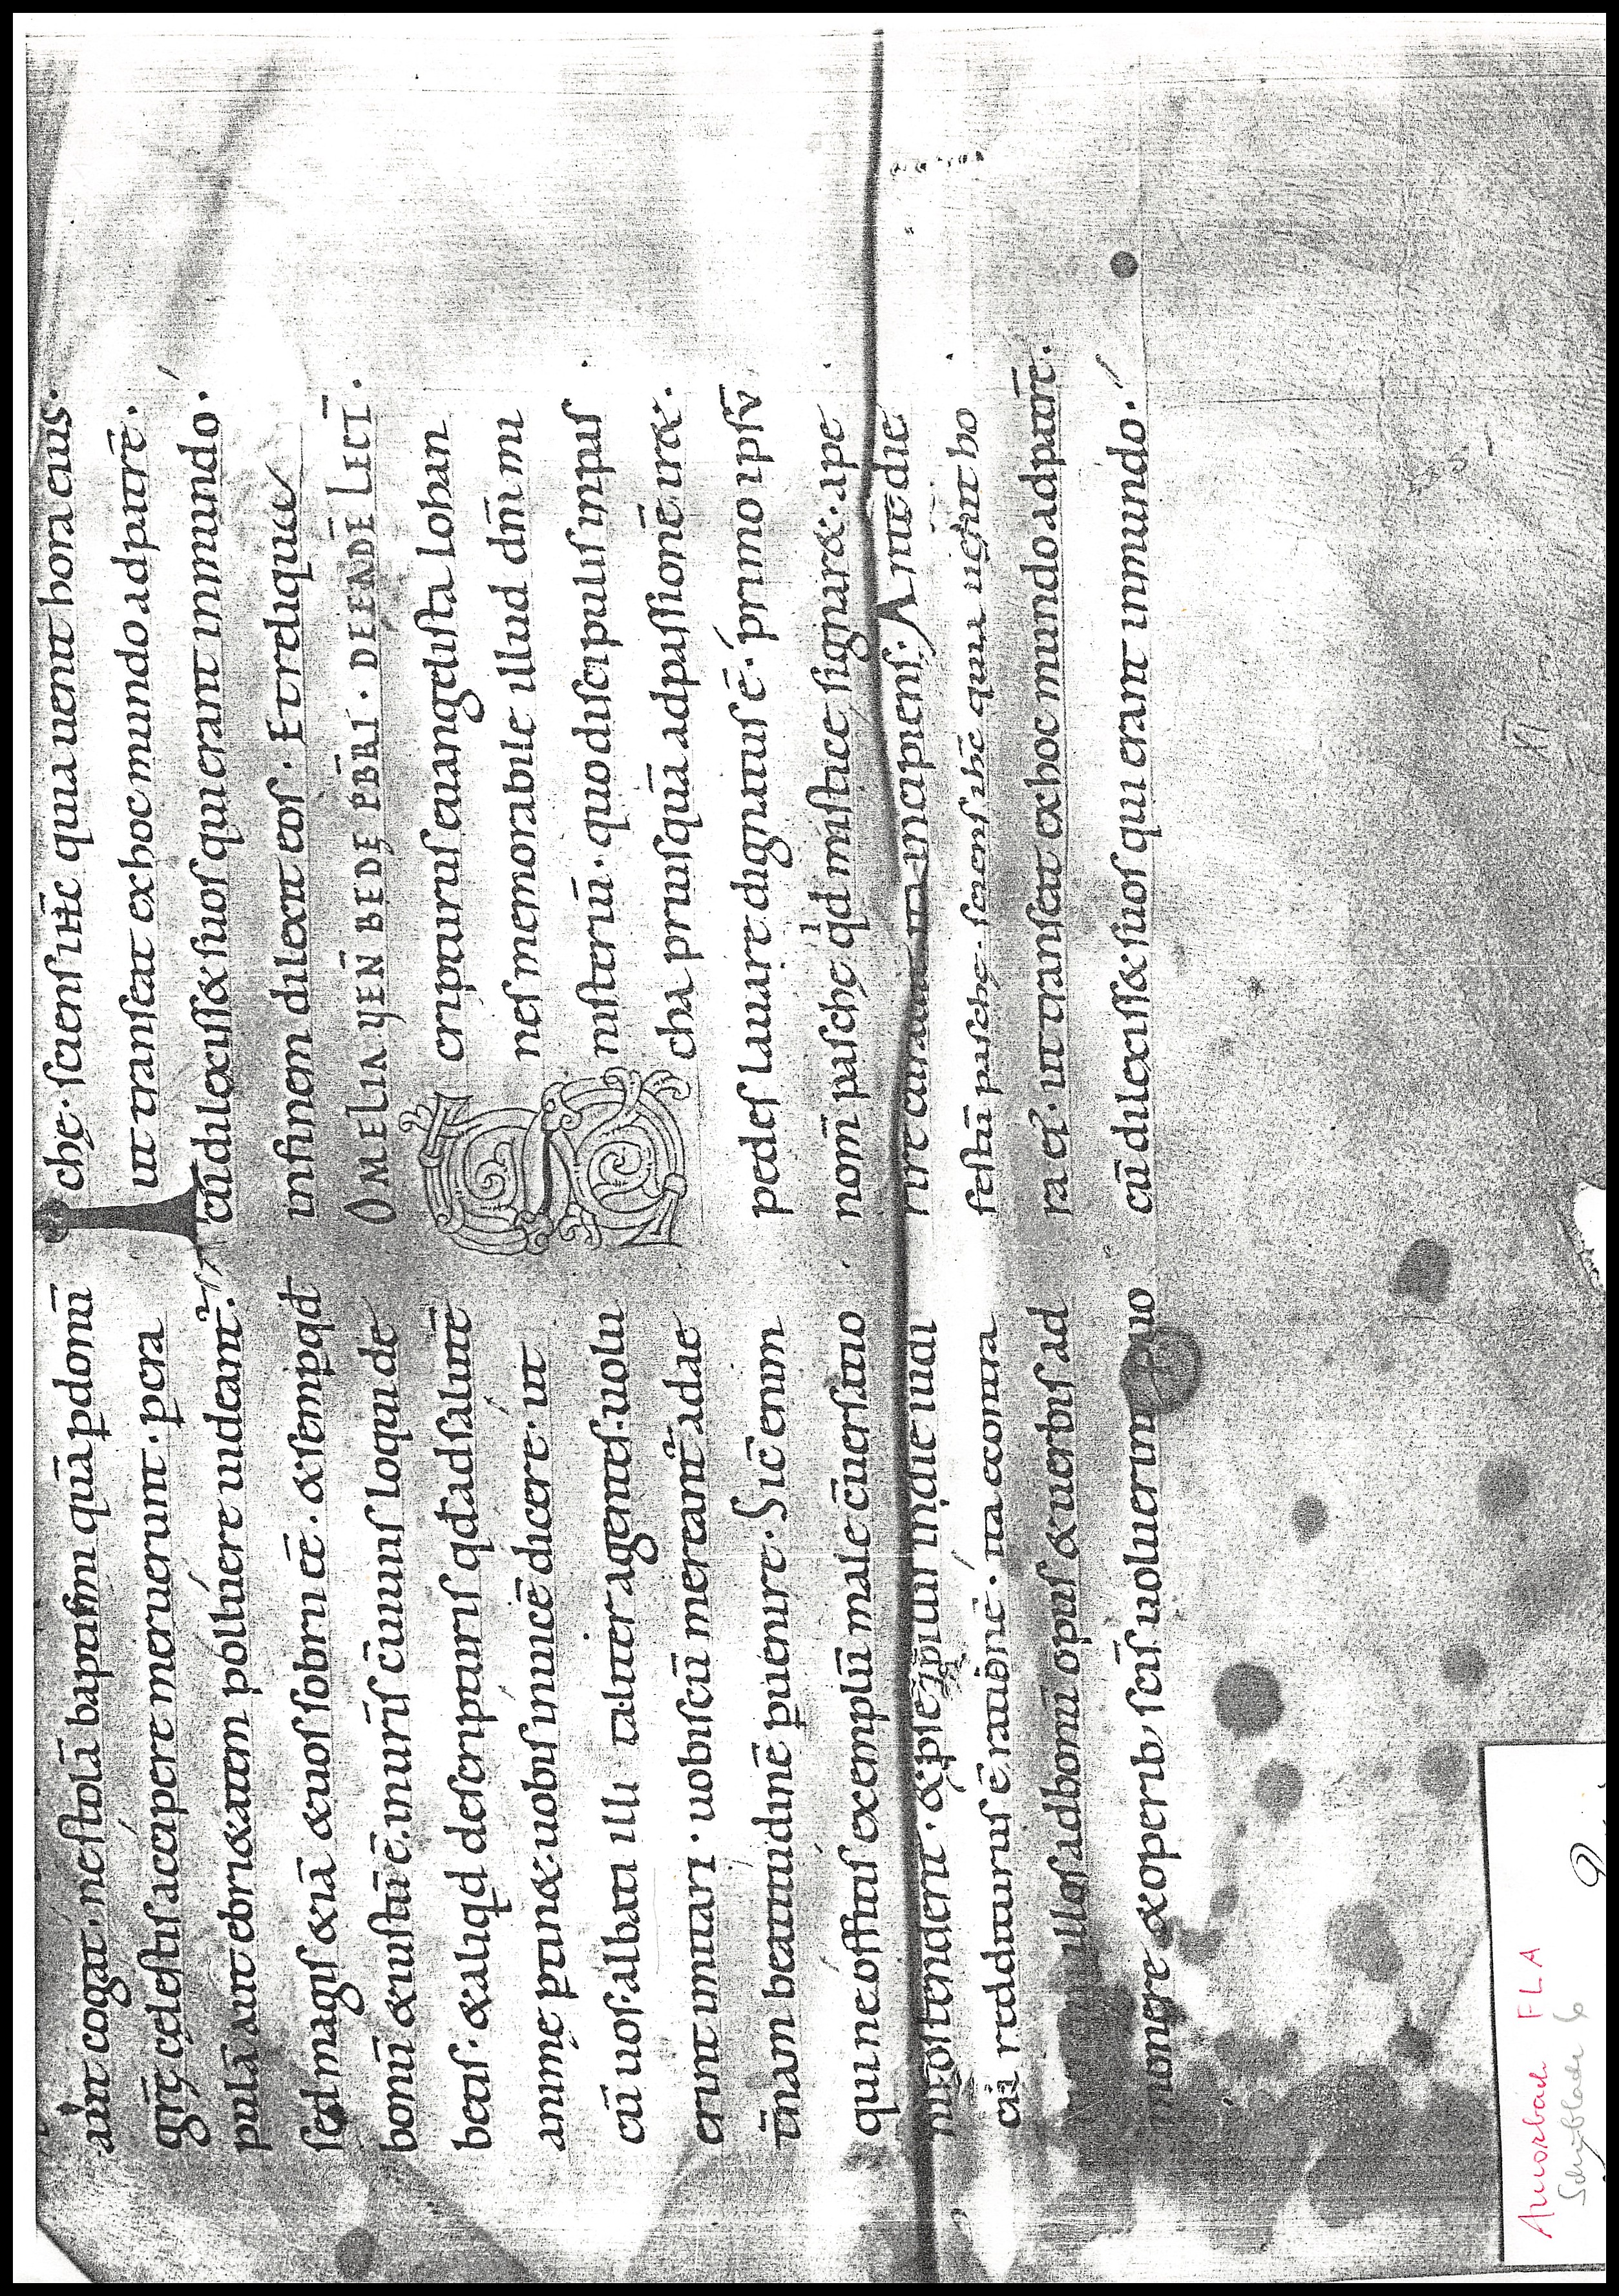 aut cogat, ne stolā baptismi quā p donū
grē cęlestis accipere meruerunt. p cra
pulā aut ebrietatem polluere uideant.
sed magis & iā & uos sobrii eē. & semp qd
bonū & iustū ē. in uris cuiuis loqui de
betis. & aliqd de scripturis qd ad salutē
animę ptin&. uobis inuicē dicere. ut
cū uos albati illi taliter agentes uolu
erint imitari. uobiscū mereant ad ae
tnam beatitudinē puenire. Sic enim
qui neofitis exemplū male cuersatio
nis ostendent. & p se ipituri in die iudi
cii reddituri s ē rationē. ita contra
illos ad bonū opus & uerbis ad
monere & operib; scis uoluerint
chę. sciens ihc quia uenit hora eius.
ut transeat ex hoc mundo ad patrē.
cū dilexiss& suos qui erant in mundo.
in finem dilexit eos. Et reliqua
OMELIA VEN̄ BEDĘ PB̄RI. DE EADĒ LECT̄.
Scripturus euangelista Iohan
nes memorabile illud dn̄i mi
nisteriū. quo discipulis in pas
cha priusquā ad passionē ir&.
pedes lauare dignatus ē. primo ipsū
nom̄ paschę qd mistice signar&. ape
rire incipiens. Ante die
festū paschę. sciens ihc quia uenit ho
ra ei. ut transeat ex hoc mundo ad patrē.
cū dilexiss& suos qui erant in mundo.
VI
Amorbach FLA
Schublade 6